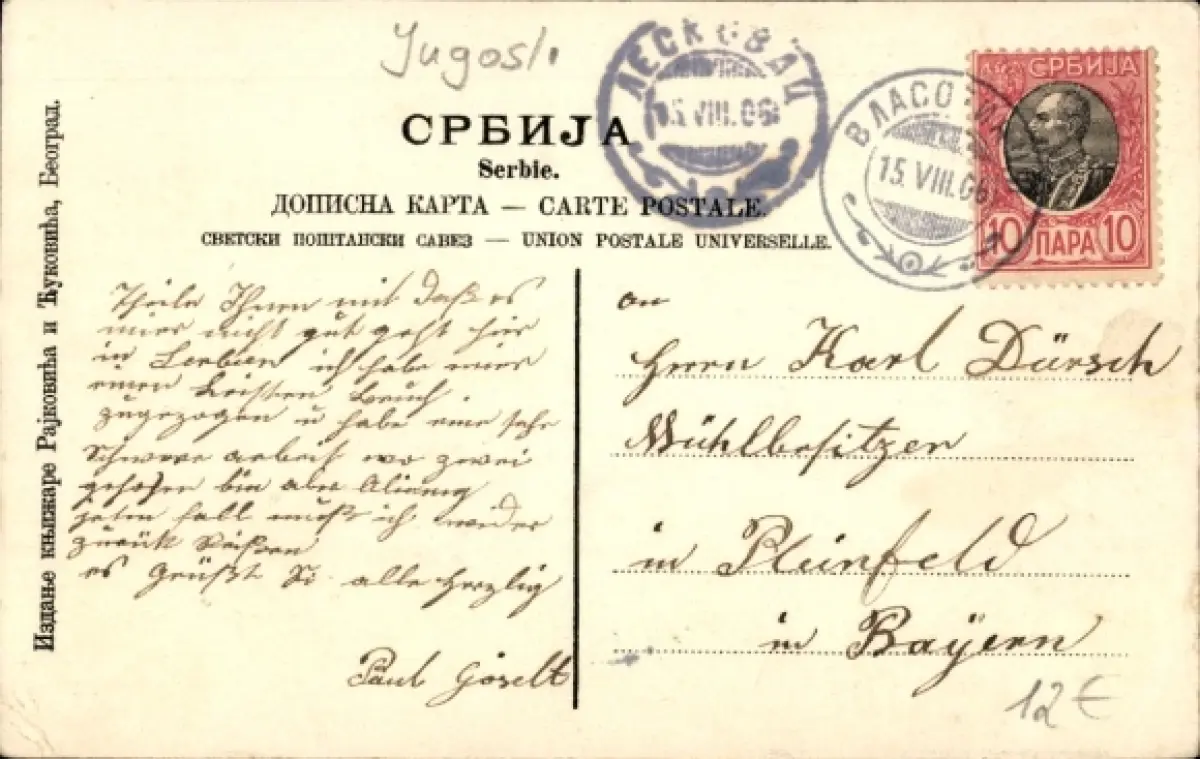 Jugosl.
ЛЕСКОВАЦ
15.VIII.06
ВЛАСО
15.VIII.06
СРБИЈА
10 ПАРА 10
СРБИЈА
Serbie.
ДОПИСНА КАРТА — CARTE POSTALE.
СВЕТСКИ ПОШТАНСКИ САВЕЗ — UNION POSTALE UNIVERSELLE.
Издање књижаре Рајковића и Ђуковића, Београд.
Theile Ihnen mit daß es
mier nicht gut geht hier
in Serbien ich habe mier
einen Bruch
zugezogen u habe eine sehr
Schwere arbeit wo zwei
bin aber
fall muß ich wieder
zurük
es Grüßt Si alle Herzlig
Paul Göselt
an
Herrn Karl Dürsch
Mühlbesitzer
in Pleinfeld
in Bayern
12€